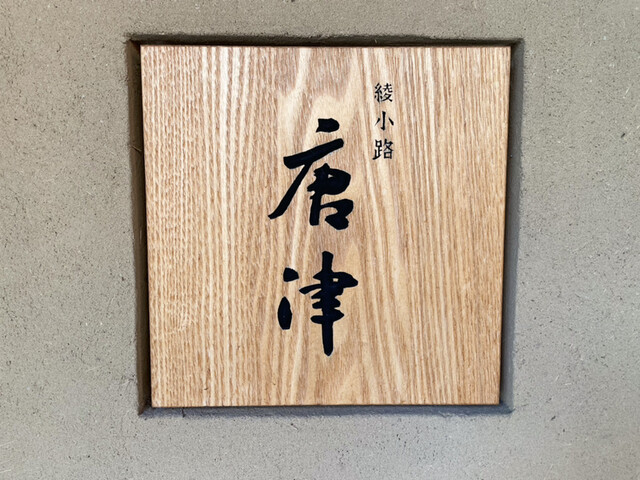 綾小路
唐津